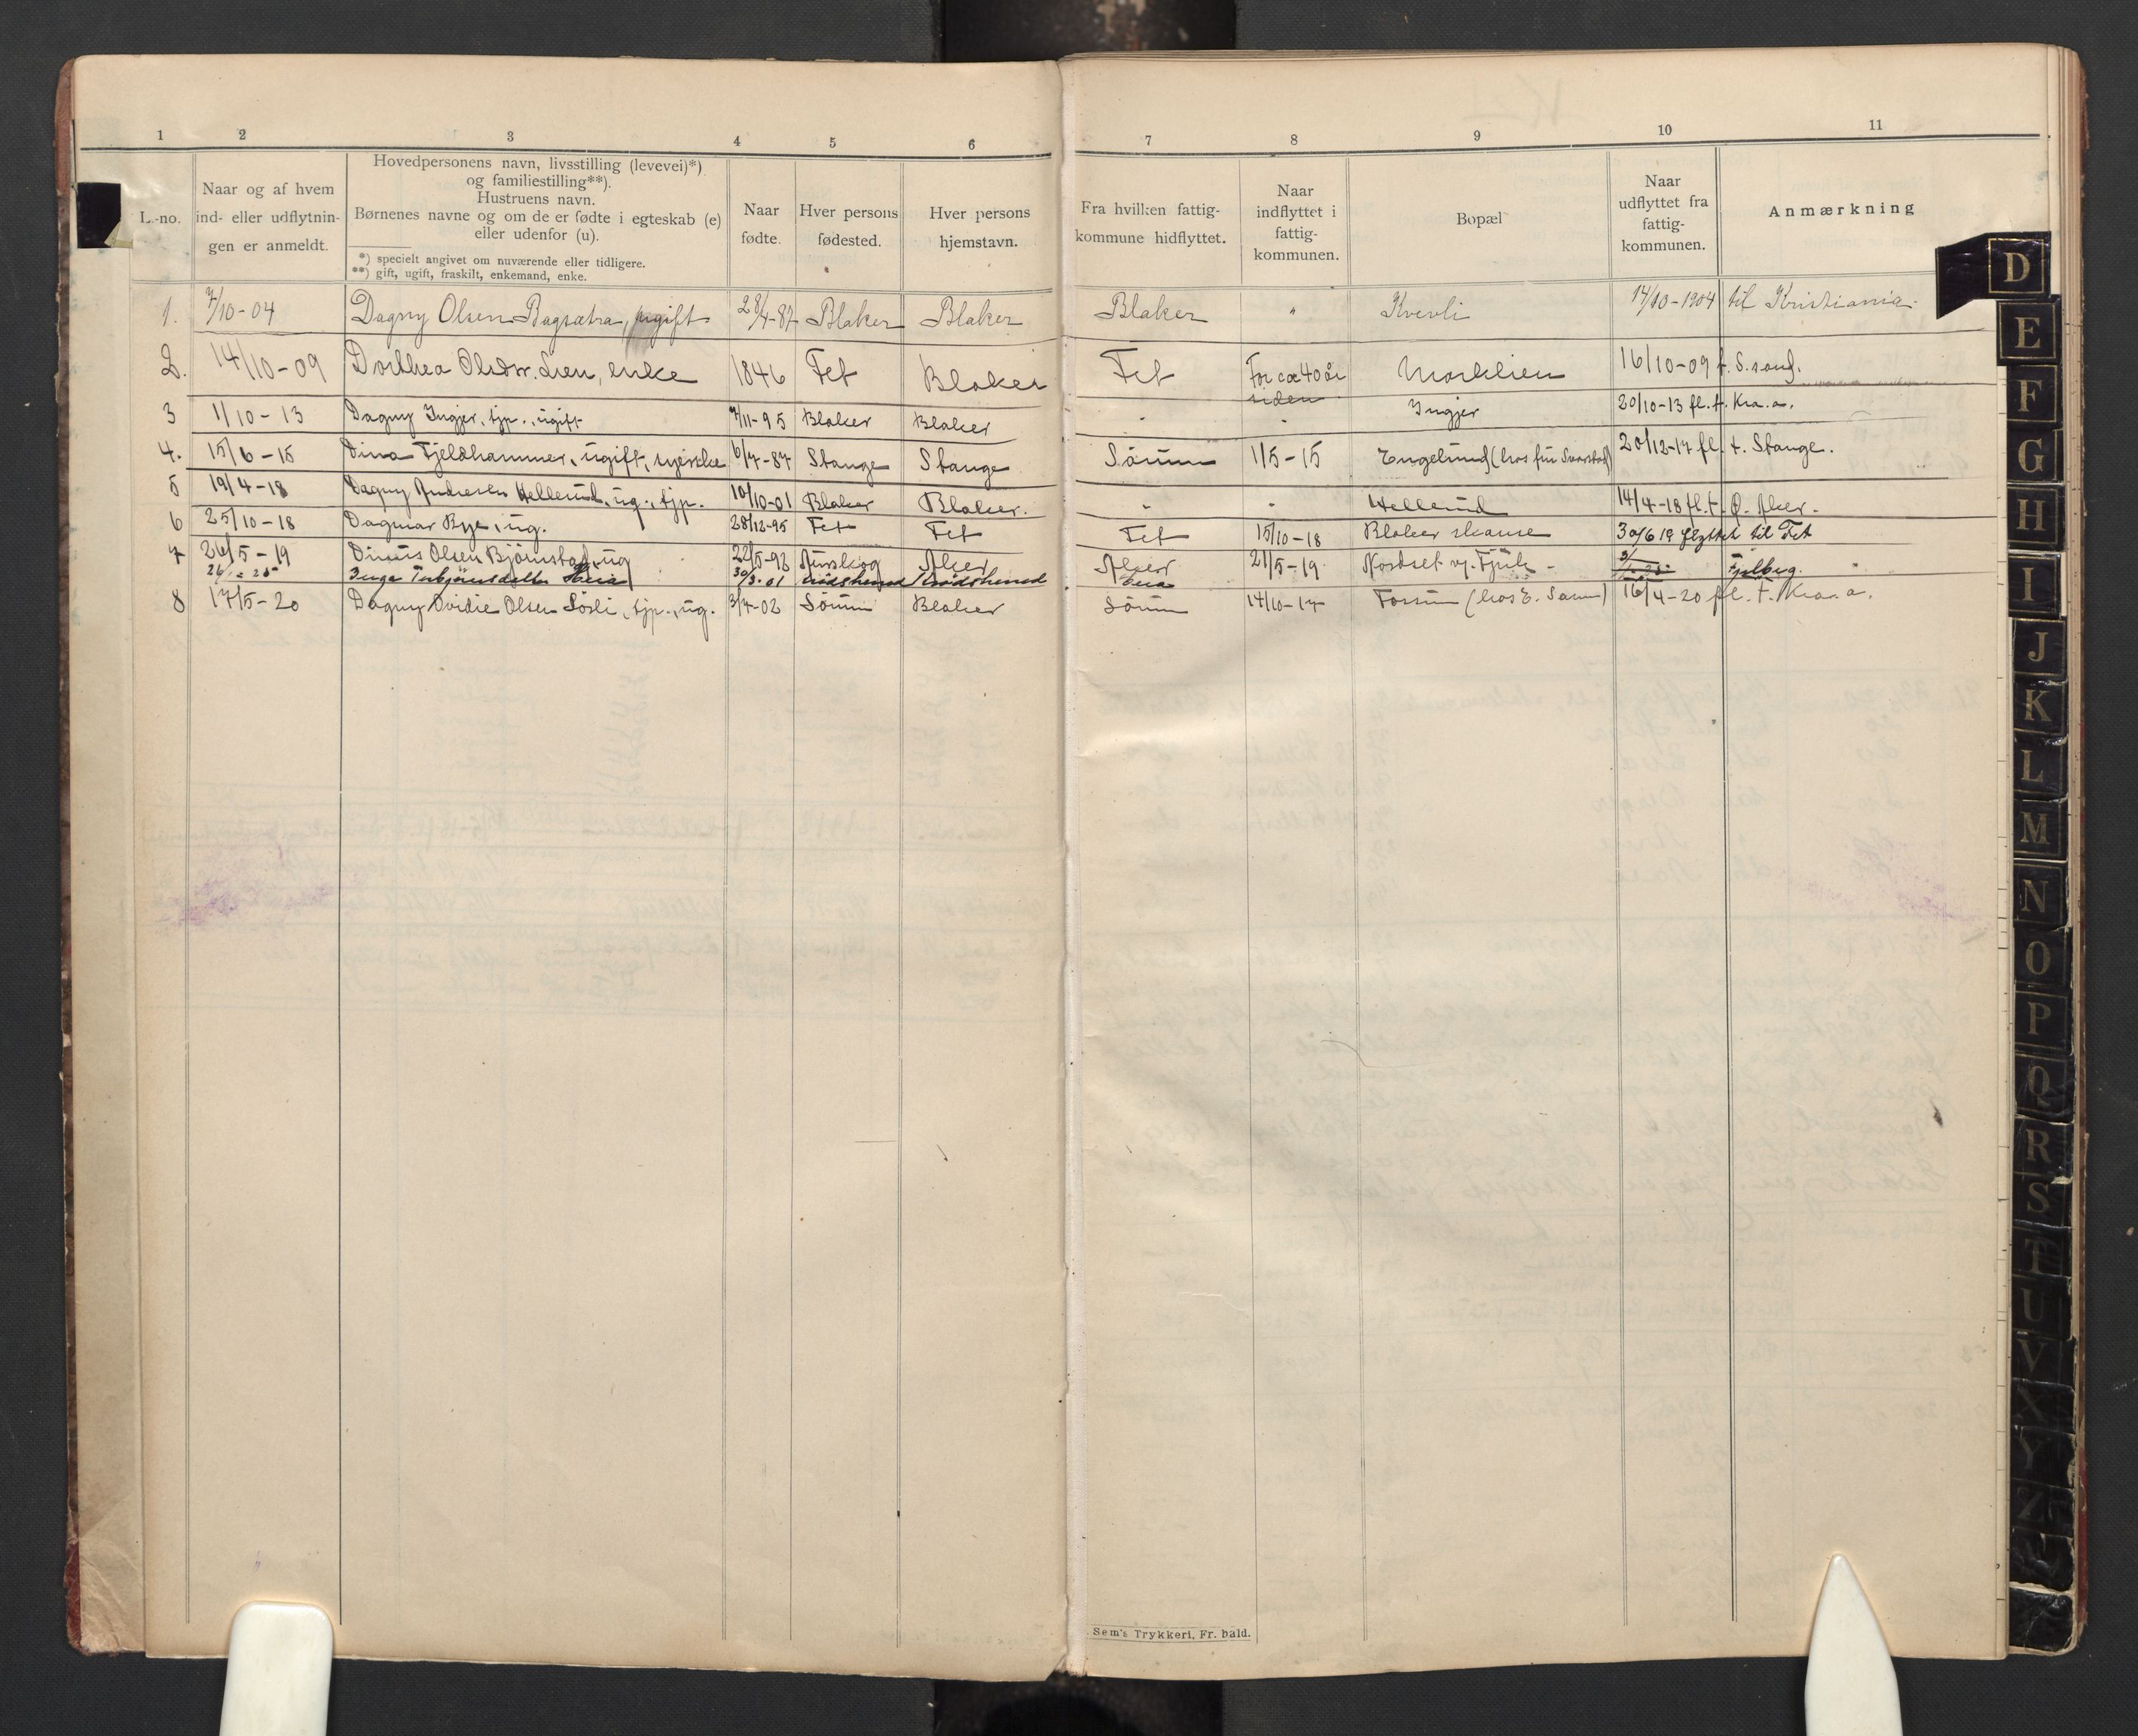 1 2 3 4 5 6 7 8 9 10 11
L.-no.
Naar og af hvem
ind- eller udflytnin-
gen er anmeldt.
Hovedpersonens navn, livsstilling (levevei)*)
og familiestilling**).
Hustruens navn.
Børnenes navne og om de er fødte i egteskab (e)
eller udenfor (u).
*) specielt angivet om nuværende eller tidligere.
**) gift, ugift, fraskilt, enkemand, enke.
Naar
fødte.
Hver persons
fødested.
Hver persons
hjemstavn.
Fra hvilken fattig-
kommune hidflyttet.
Naar
indflyttet i
fattig-
kommunen.
Bopæl
Naar
udflyttet fra
fattig-
kommunen.
Anmærkning
1. 7/10-04 Dagny Olsen Bagsætra, ugift 28/4-87 Blaker Blaker Blaker " Kvevli 14/10-1904 til Kristiania.
2. 14/10-09 Dorthea Olsdtr. Lien, enke 1846 Fet Blaker Fet For ca 40 år siden Morklien 16/10-09 t. S.rand.
3 1/10-13 Dagny Ingjer, tjp., ugift 7/11-95 Blaker Blaker " " Ingjer 20/10-13 fl. t. Kra.a.
4. 15/6-15 Dina Fjeldhammer, ugift, meierske 6/7-87 Stange Stange Sørum 1/5-15 Engelund (hos fru Svarstad) 20/12-17 fl. t. Stange.
5 19/4-18 Dagny Andresen Hellerud, ug., tjp. 10/10-01 Blaker Blaker. " " Hellerud 14/4-18 fl. t. Ø. Aker.
6 25/10-18 Dagmar Bye, ug. 28/12-95 Fet Fet Fet 15/10-18 Blaker skanse 30/6 19 flyttet til Fet
7 26/5-19 Dinus Olsen Bjørnstad, ug 22/5-92 Aurskog Aker Aker 21/5-19 Nordset v. Fjuk -
26/1-25 Inga Torbjørnsdatter Heia 30/3-01 Trødsherad Trødsherad Fjelbyg.
8 17/5-20 Dagny Ovidie Olsen Løsli, tjp., ug. 3/7-02 Sørum Blaker Sørum 14/10-17 Fossum (hos E. Sarum) 16/4-20 fl. t. Kra.a.
Sem's Trykkeri, Fr. hald.
D
E
F
G
H
I
J
K
L
M
N
O
P
Q
R
S
T
U
V
X
Y
Z